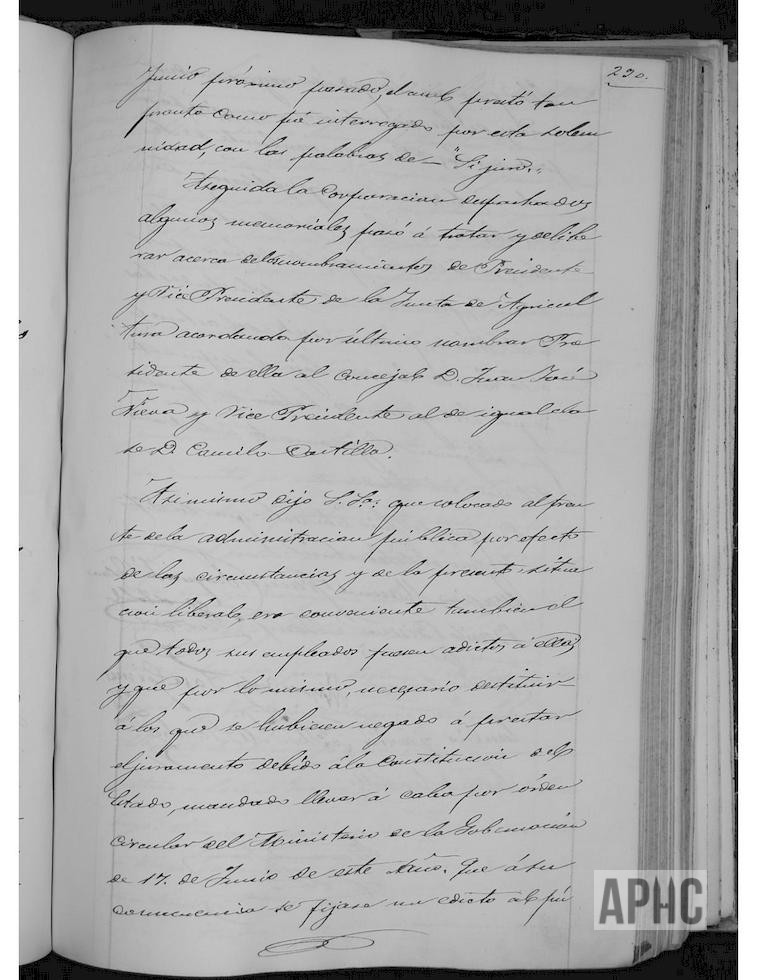 230.
Junio próximo pasado, el cual prestó tan
pronto como fué interrogado por esta solem
nidad, con las palabras de — "Si juro".
Aseguida la Corporacion despachados
algunos memoriales pasó á tratar y delibe
rar acerca de los nombramientos de Presidente
y Vice Presidente de la Junta de Agricul
tura acordando por último nombrar Pre
sidente de ella al concejal D. Juan José
y Vice Presidente al de igual cla
se D. Camilo Castilla.
Asimismo dijo S. Sª: que colocado al fren
te de la administracion pública por efecto
de las circunstancias y de la presente situa
cion liberal, era conveniente tambien el
que todos sus empleados fuesen adictos á ella;
y que por lo mismo, necesario destituir
á los que se hubiesen negado á prestar
el juramento debido á la Constitucion del
Estado, mandado llevar á cabo por órden
circular del Ministerio de la Gobernacion
de 17. de Junio de este Año. Que á su
consecuencia se fijase un edicto al pú
APHC